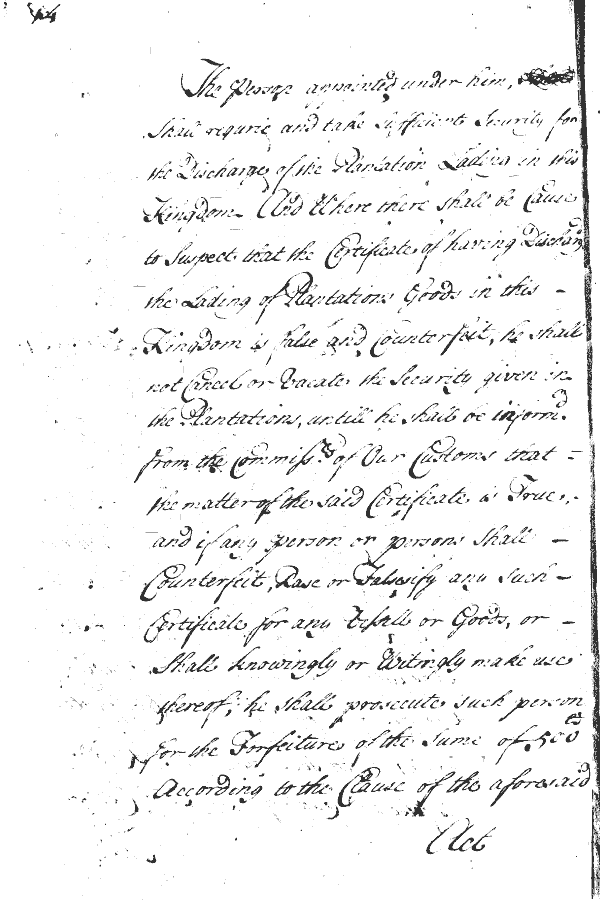 The Person appointed under him,
Shall requrie and take sufficient Security for
the Discharge of the Plantation Lading in this
Kingdom. And Where there shall be Cause
to Suspect that the Certificate of having Discharg
the Lading of Plantations Goods in this –
Kingdom is false and Counterfeit, he shall
not Cancel or Vacate the Security given in
the Plantations, untill he shall be inform'd
from the Commissrs of Our Customs that =
the matter of the said Certificate is True,
and if any person or persons shall –
Counterfeit, Rase or Falsesify any such –
Certificate for any Vessell or Goods, or –
Shall knowingly or Witingly make use
thereof, he shall prosecute such person
for the Forfeiture of the Sume of 500
According to the Clause of the aforesaid
Act